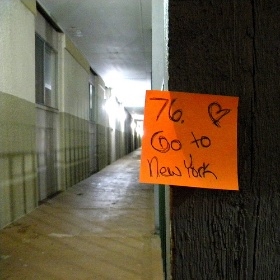 76. ♡
Go to
New York